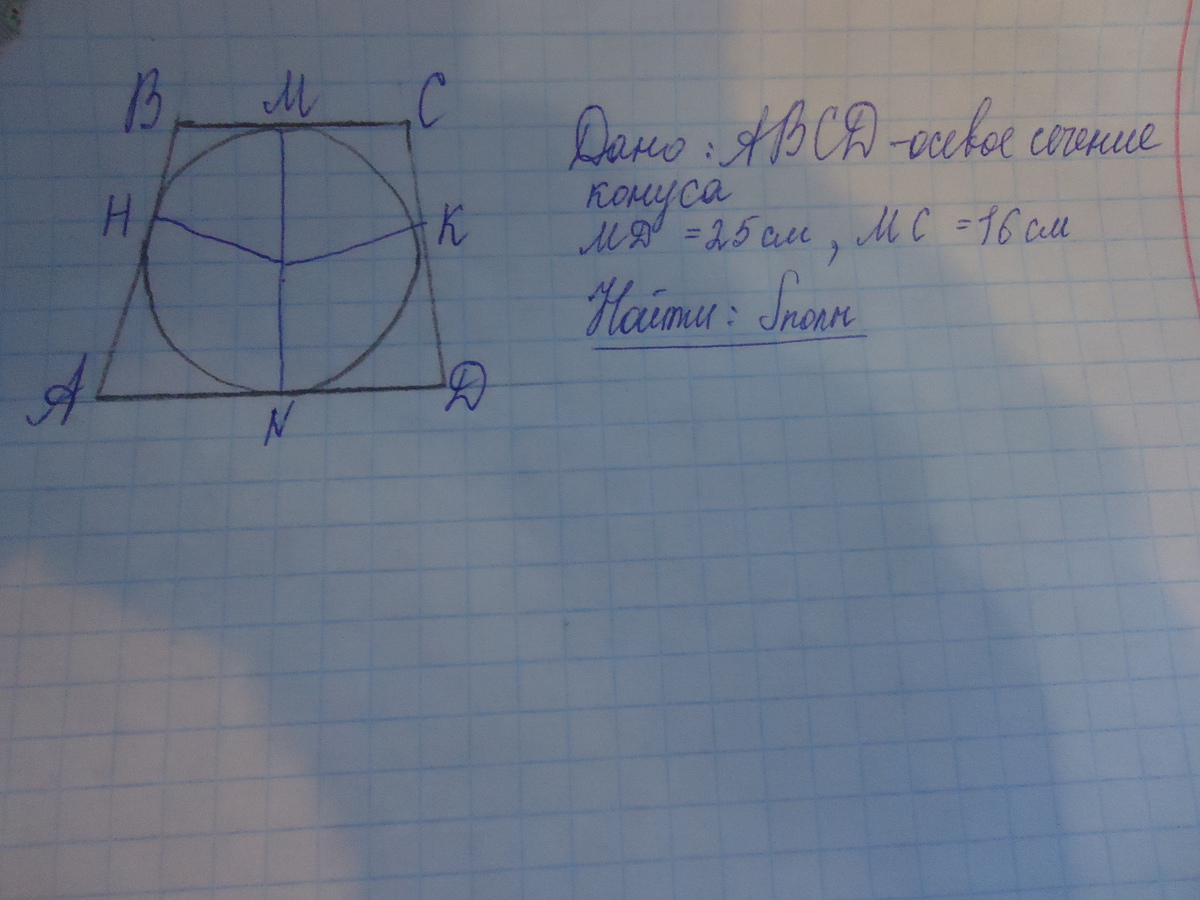 B M C
H K
A N D
Дано: ABCD - осевое сечение
конуса
MD = 25 см, MC = 16 см
Найти: Sполн